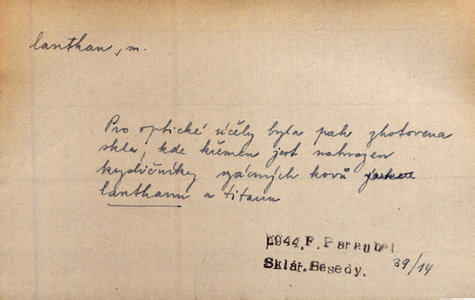 lanthan, m.
Pro optické účely byla pak zhotovena
skla, kde křemen jest nahrazen
kysličníky vzácných kovů
lanthanu a titanu
1944. F. Paraubel
Sklář. Besedy. 39/14